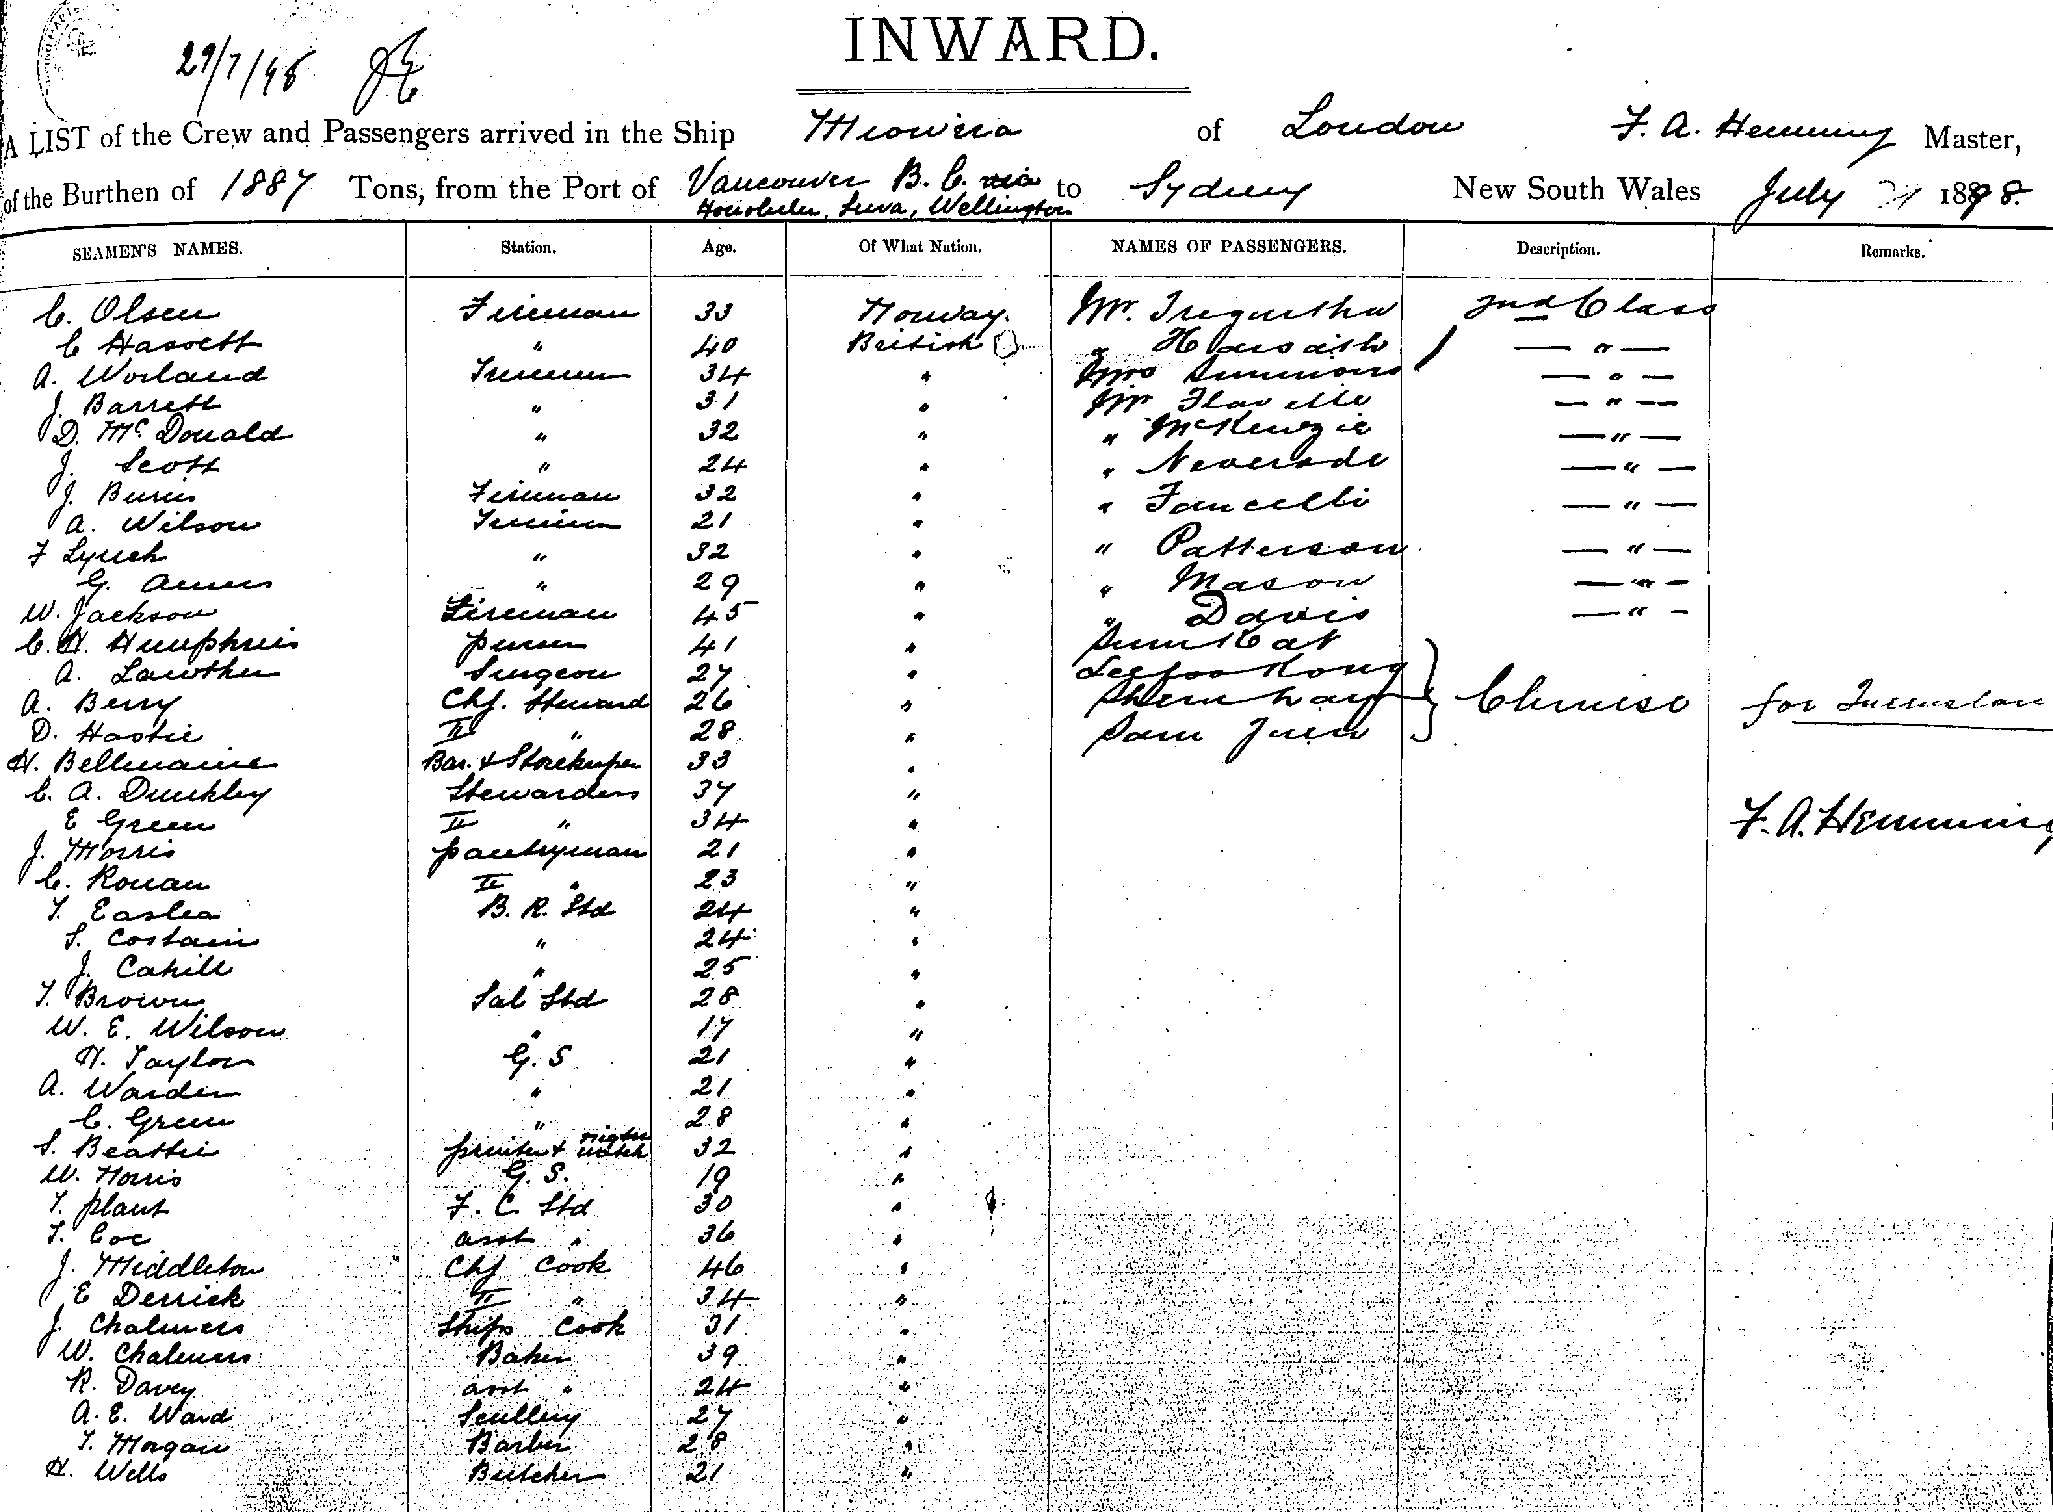 INWARD.
29/7/98
A LIST of the Crew and Passengers arrived in the Ship Miowera of London F. A. Hemming Master,
of the Burthen of 1887 Tons, from the Port of Vancouver B. C. via to Sydney New South Wales July 1898.
Honolulu, Suva, Wellington
SEAMEN'S NAMES. Station. Age. Of What Nation. NAMES OF PASSENGERS. Description. Remarks.
C. Olsen Fireman 33 Norway. Mr. Tregurtha 2nd Class
C Hassett " 40 British " — " —
A. Worland Trimmer 34 " Mrs Simmons — " —
J. Barrett " 31 " Mr — " —
D. McDonald " 32 " " McKenzie — " —
J. Scott " 24 " " — " —
J. Burns Fireman 32 " " Fancelli — " —
A. Wilson Trimmer 21 "
F Lynch " 32 " " Patterson — " —
G. " 29 " " Mason — " —
W. Jackson Fireman 45 " " Davis — " —
C. H. Humphries purser 41 " Kat
A. Lawther Surgeon 27 " Kong
A. Berry Chf. Steward 26 " Chinese for
D. Hastie II " 28 " Sam
H. Bellmaine Bar. & Storekeeper 33 "
C. A. Dunkley Stewardess 37 "
E Green II " 34 " F. A. Hemming
J. Morris pantryman 21 "
C. Ronan II " 23 "
T. Easlea B. R. Std 24 "
S. Costain " 24 "
J. Cahill " 25 "
T. Brown Sal Std 28 "
W. E. Wilson " 17 "
H. Taylor G. S 21 "
A. Warden " 21 "
C. Green " 28 "
S. Beattie printer & night watch 32 "
W. Norris G. S. 19 "
T. plant F. C Std 30 "
T. Coe asst " 36 "
J. Middleton Chf Cook 46 "
E Derrick II " 34 "
J. Chalmers Ships Cook 31 "
W. Chalmers Baker 39 "
R. Davey asst " 24 "
A. E. Ward Scullery 27 "
T. Morgan Barber 28 "
H. Wells Butcher 21 "